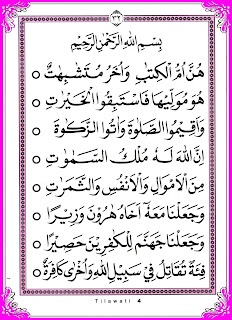 ٣٦
بِسْمِ اللّٰهِ الرَّحْمٰنِ الرَّحِيْمِ
هُنَّ اُمُّ الْكِتٰبِ وَاُخَرُ مُتَشٰبِهٰتٌ
هُوَ مُوَلِّيْهَا فَاسْتَبِقُوا الْخَيْرٰتِ
وَاَقِيْمُوا الصَّلٰوةَ وَاٰتُوا الزَّكٰوةَ
اِنَّ اللّٰهَ لَهٗ مُلْكُ السَّمٰوٰتِ
مِنَ الْاَمْوَالِ وَالْاَنْفُسِ وَالثَّمَرٰتِ
وَجَعَلْنَا مَعَهٗٓ اَخَاهُ هٰرُوْنَ وَزِيْرًا
وَجَعَلْنَا جَهَنَّمَ لِلْكٰفِرِيْنَ حَصِيْرًا
فِئَةٌ تُقَاتِلُ فِيْ سَبِيْلِ اللّٰهِ وَاُخْرٰى كَافِرَةٌ
Tilawati 4